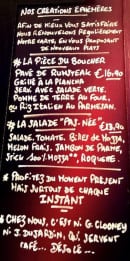 NOS CRÉATIONS ÉPHÉMÈRES
AFIN DE MIEUX VOUS SATISFAIRE
NOUS RENOUVELONS RÉGULIÈREMENT
NOTRE CARTE, EN VOUS PROPOSANT
DE NOUVEAUX PLATS
* LA PIÈCE DU BOUCHER
PAVÉ DE RUMSTEAK €16,90
GRILLÉ À LA PLANCHA
SERVI AVEC SALADE VERTE,
POMME DE TERRE AU FOUR,
OU RIZ ITALIEN AU PARMESAN.
* LA SALADE "PAS. NÉE"
SALADE, TOMATE, BILLES DE MOZZA,
MELON, FRAIS, JAMBON DE PARME,
STICK MOZZA, ROQUETTE.
* PROFITEZ DU MOMENT PRÉSENT
MAIS SURTOUT DE CHAQUE
INSTANT
* CHEZ NOUS, C'EST NI G. CLOONEY
NI J. DUJARDIN, QUI SERVENT
CAFÉ... DÉSOLÉ...